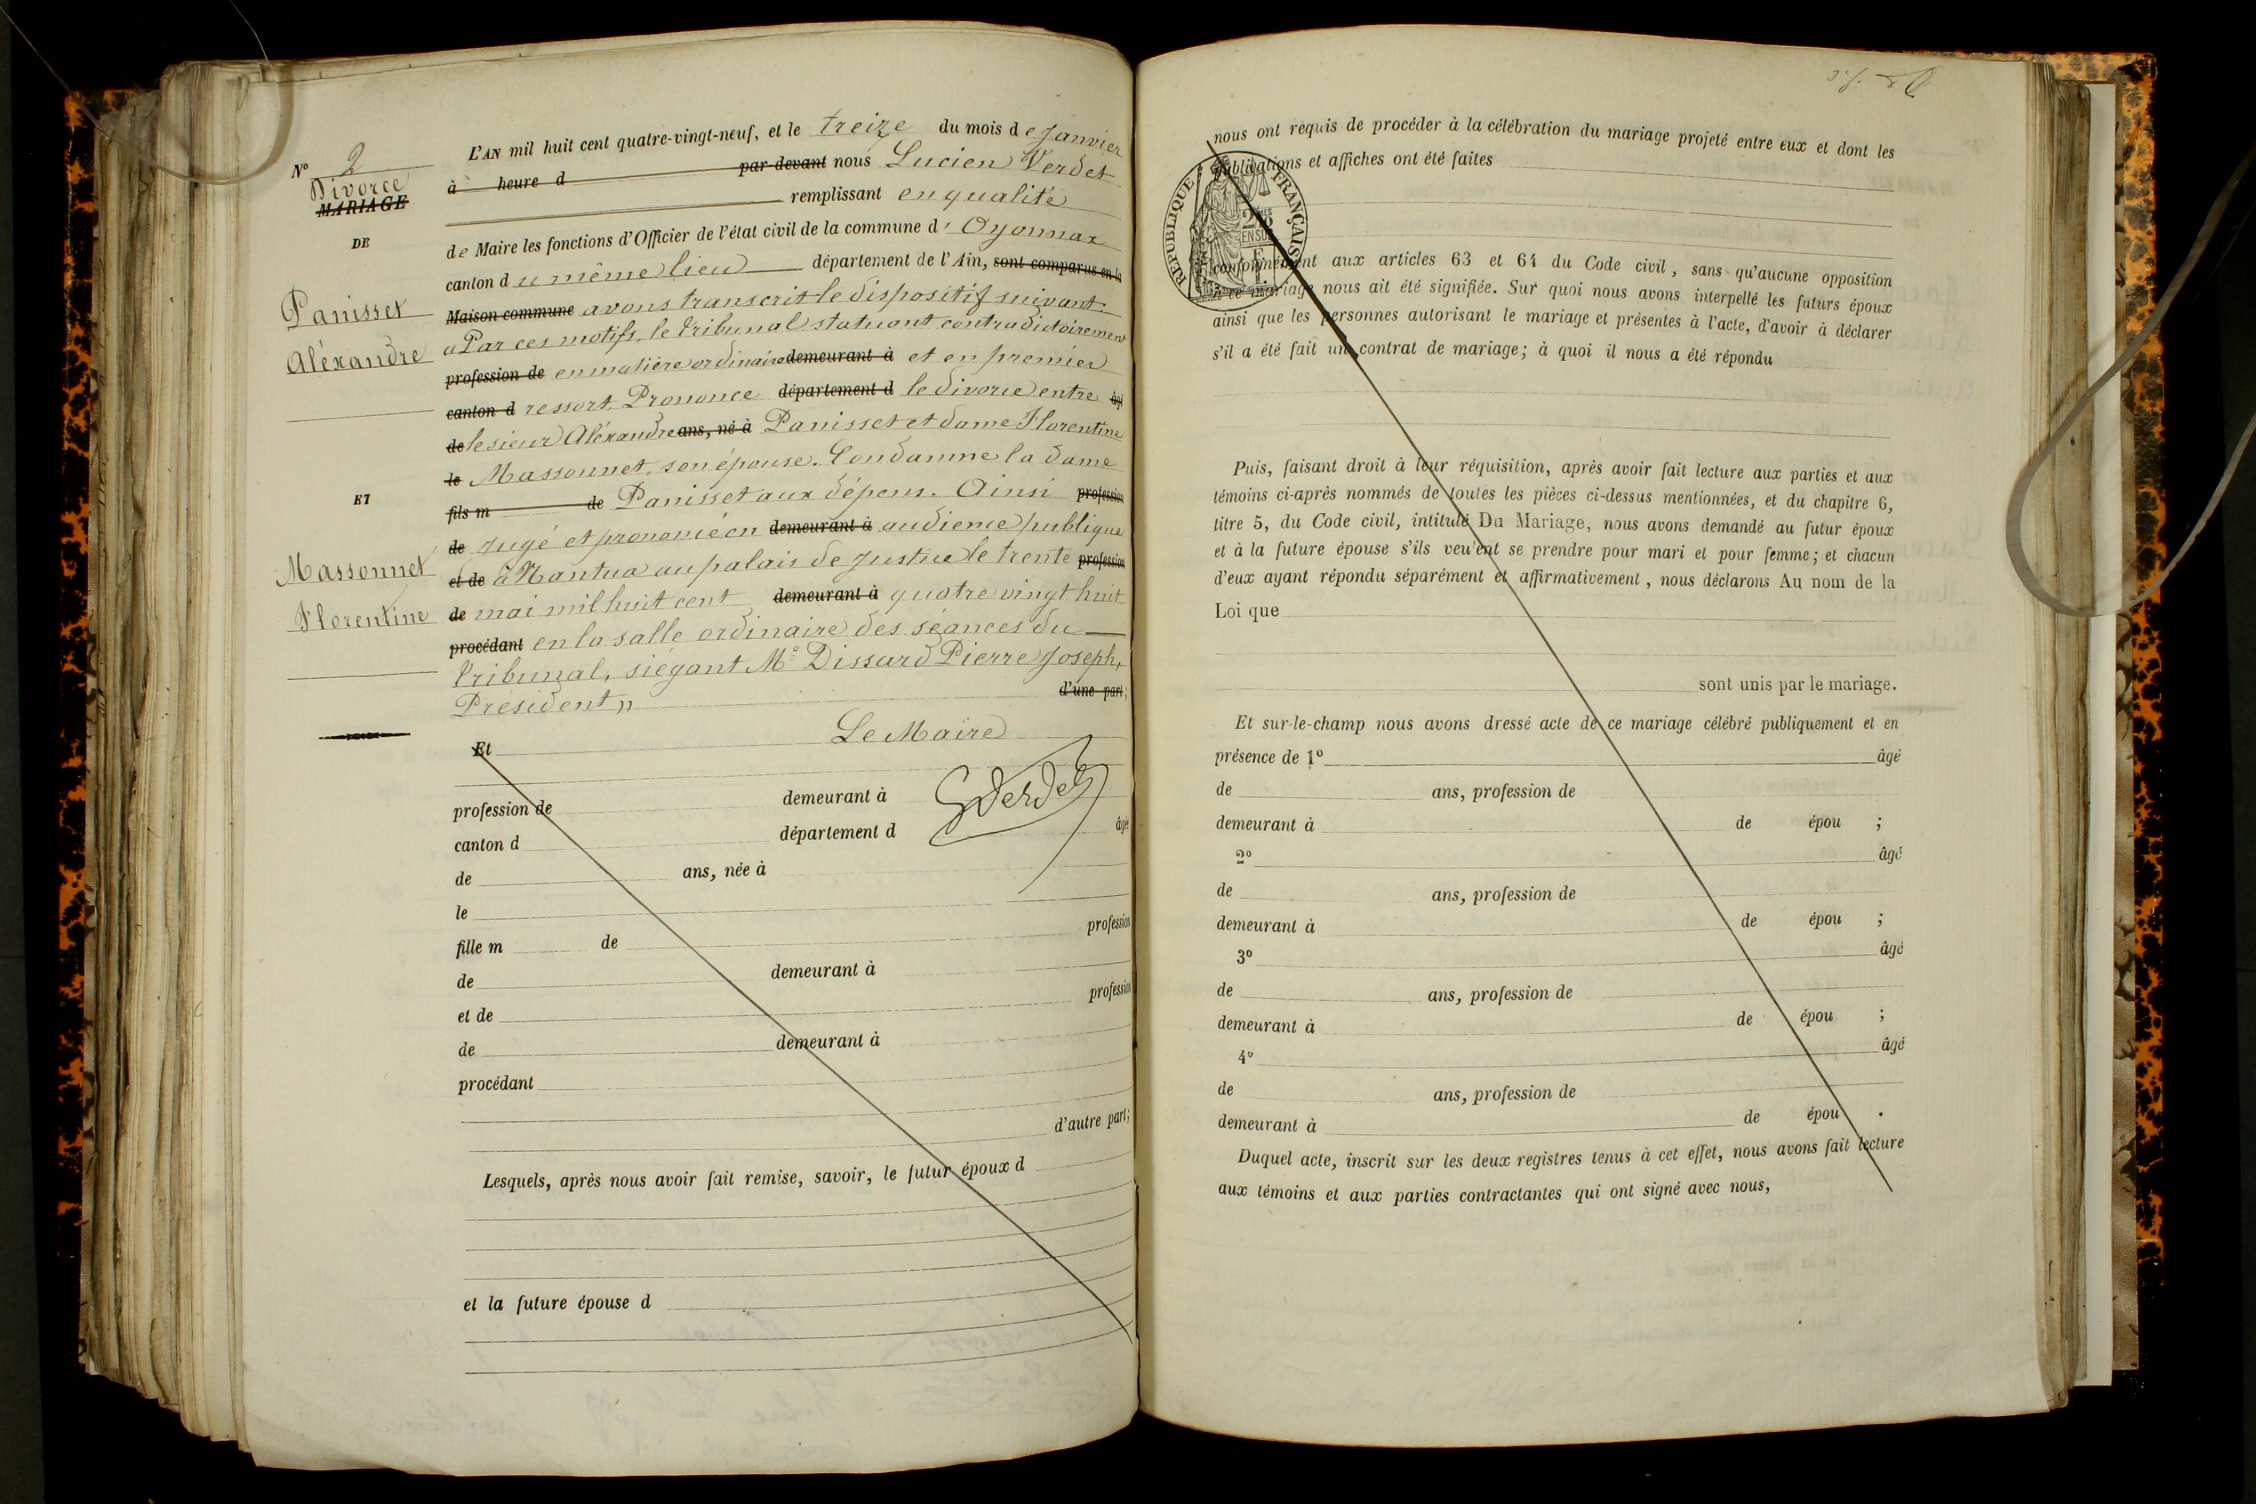 L'AN mil huit cent quatre-vingt-neuf, et le treize du mois de Janvier
à heure d par-devant nous Lucien Verdet
remplissant en qualité
de Maire les fonctions d'Officier de l'état civil de la commune d' Oyonnax
canton du même lieu département de l'Ain, sont comparus en la
Maison commune avons transcrit le dispositif suivant:
« Par ces motifs, le Tribunal statuant contradictoirement
profession de en matière ordinaire demeurant à et en premier
canton d ressort. Prononce département d le divorce entre âgé
de le sieur Aléxandre ans, né à Panisset et dame Florentine
le Massonnet, son épouse. Condamne la dame
fils m de Panisset aux dépens. Ainsi profession
de jugé et prononcé en demeurant à audience publique
et de à Nantua au palais de justice le trente profession
de mai mil huit cent demeurant à quatre vingt huit
procédant en la salle ordinaire des séances du
Tribunal, siégant Me Dissard Pierre Joseph,
Président » d'une part;
Le Maire
Verdet
N° 2
Divorce
MARIAGE
DE
Panisset
Aléxandre
ET
Massonnet
Florentine
Et
profession de demeurant à
canton d département d âgé
de ans, née à
le
fille m de profession
de demeurant à
et de profession
de demeurant à
procédant
d'autre part;
Lesquels, après nous avoir fait remise, savoir, le futur époux d
et la future épouse d
nous ont réquis de procéder à la célébration du mariage projeté entre eux et dont les
publications et affiches ont été faites
RÉPUBLIQUE FRANÇAISE
2 EN SUS
conformément aux articles 63 et 64 du Code civil, sans qu'aucune opposition
à ce mariage nous ait été signifiée. Sur quoi nous avons interpellé les futurs époux
ainsi que les personnes autorisant le mariage et présentes à l'acte, d'avoir à déclarer
s'il a été fait un contrat de mariage; à quoi il nous a été répondu
Puis, faisant droit à leur réquisition, après avoir fait lecture aux parties et aux
témoins ci-après nommés de toutes les pièces ci-dessus mentionnées, et du chapitre 6,
titre 5, du Code civil, intitulé Du Mariage, nous avons demandé au futur époux
et à la future épouse s'ils veulent se prendre pour mari et pour femme; et chacun
d'eux ayant répondu séparément et affirmativement, nous déclarons Au nom de la
Loi que
sont unis par le mariage.
Et sur-le-champ nous avons dressé acte de ce mariage célébré publiquement et en
présence de 1° âgé
de ans, profession de
demeurant à de épou ;
2° âgé
de ans, profession de
demeurant à de épou ;
3° âgé
de ans, profession de
demeurant à de épou ;
4° âgé
de ans, profession de
demeurant à de épou .
Duquel acte, inscrit sur les deux registres tenus à cet effet, nous avons fait lecture
aux témoins et aux parties contractantes qui ont signé avec nous,